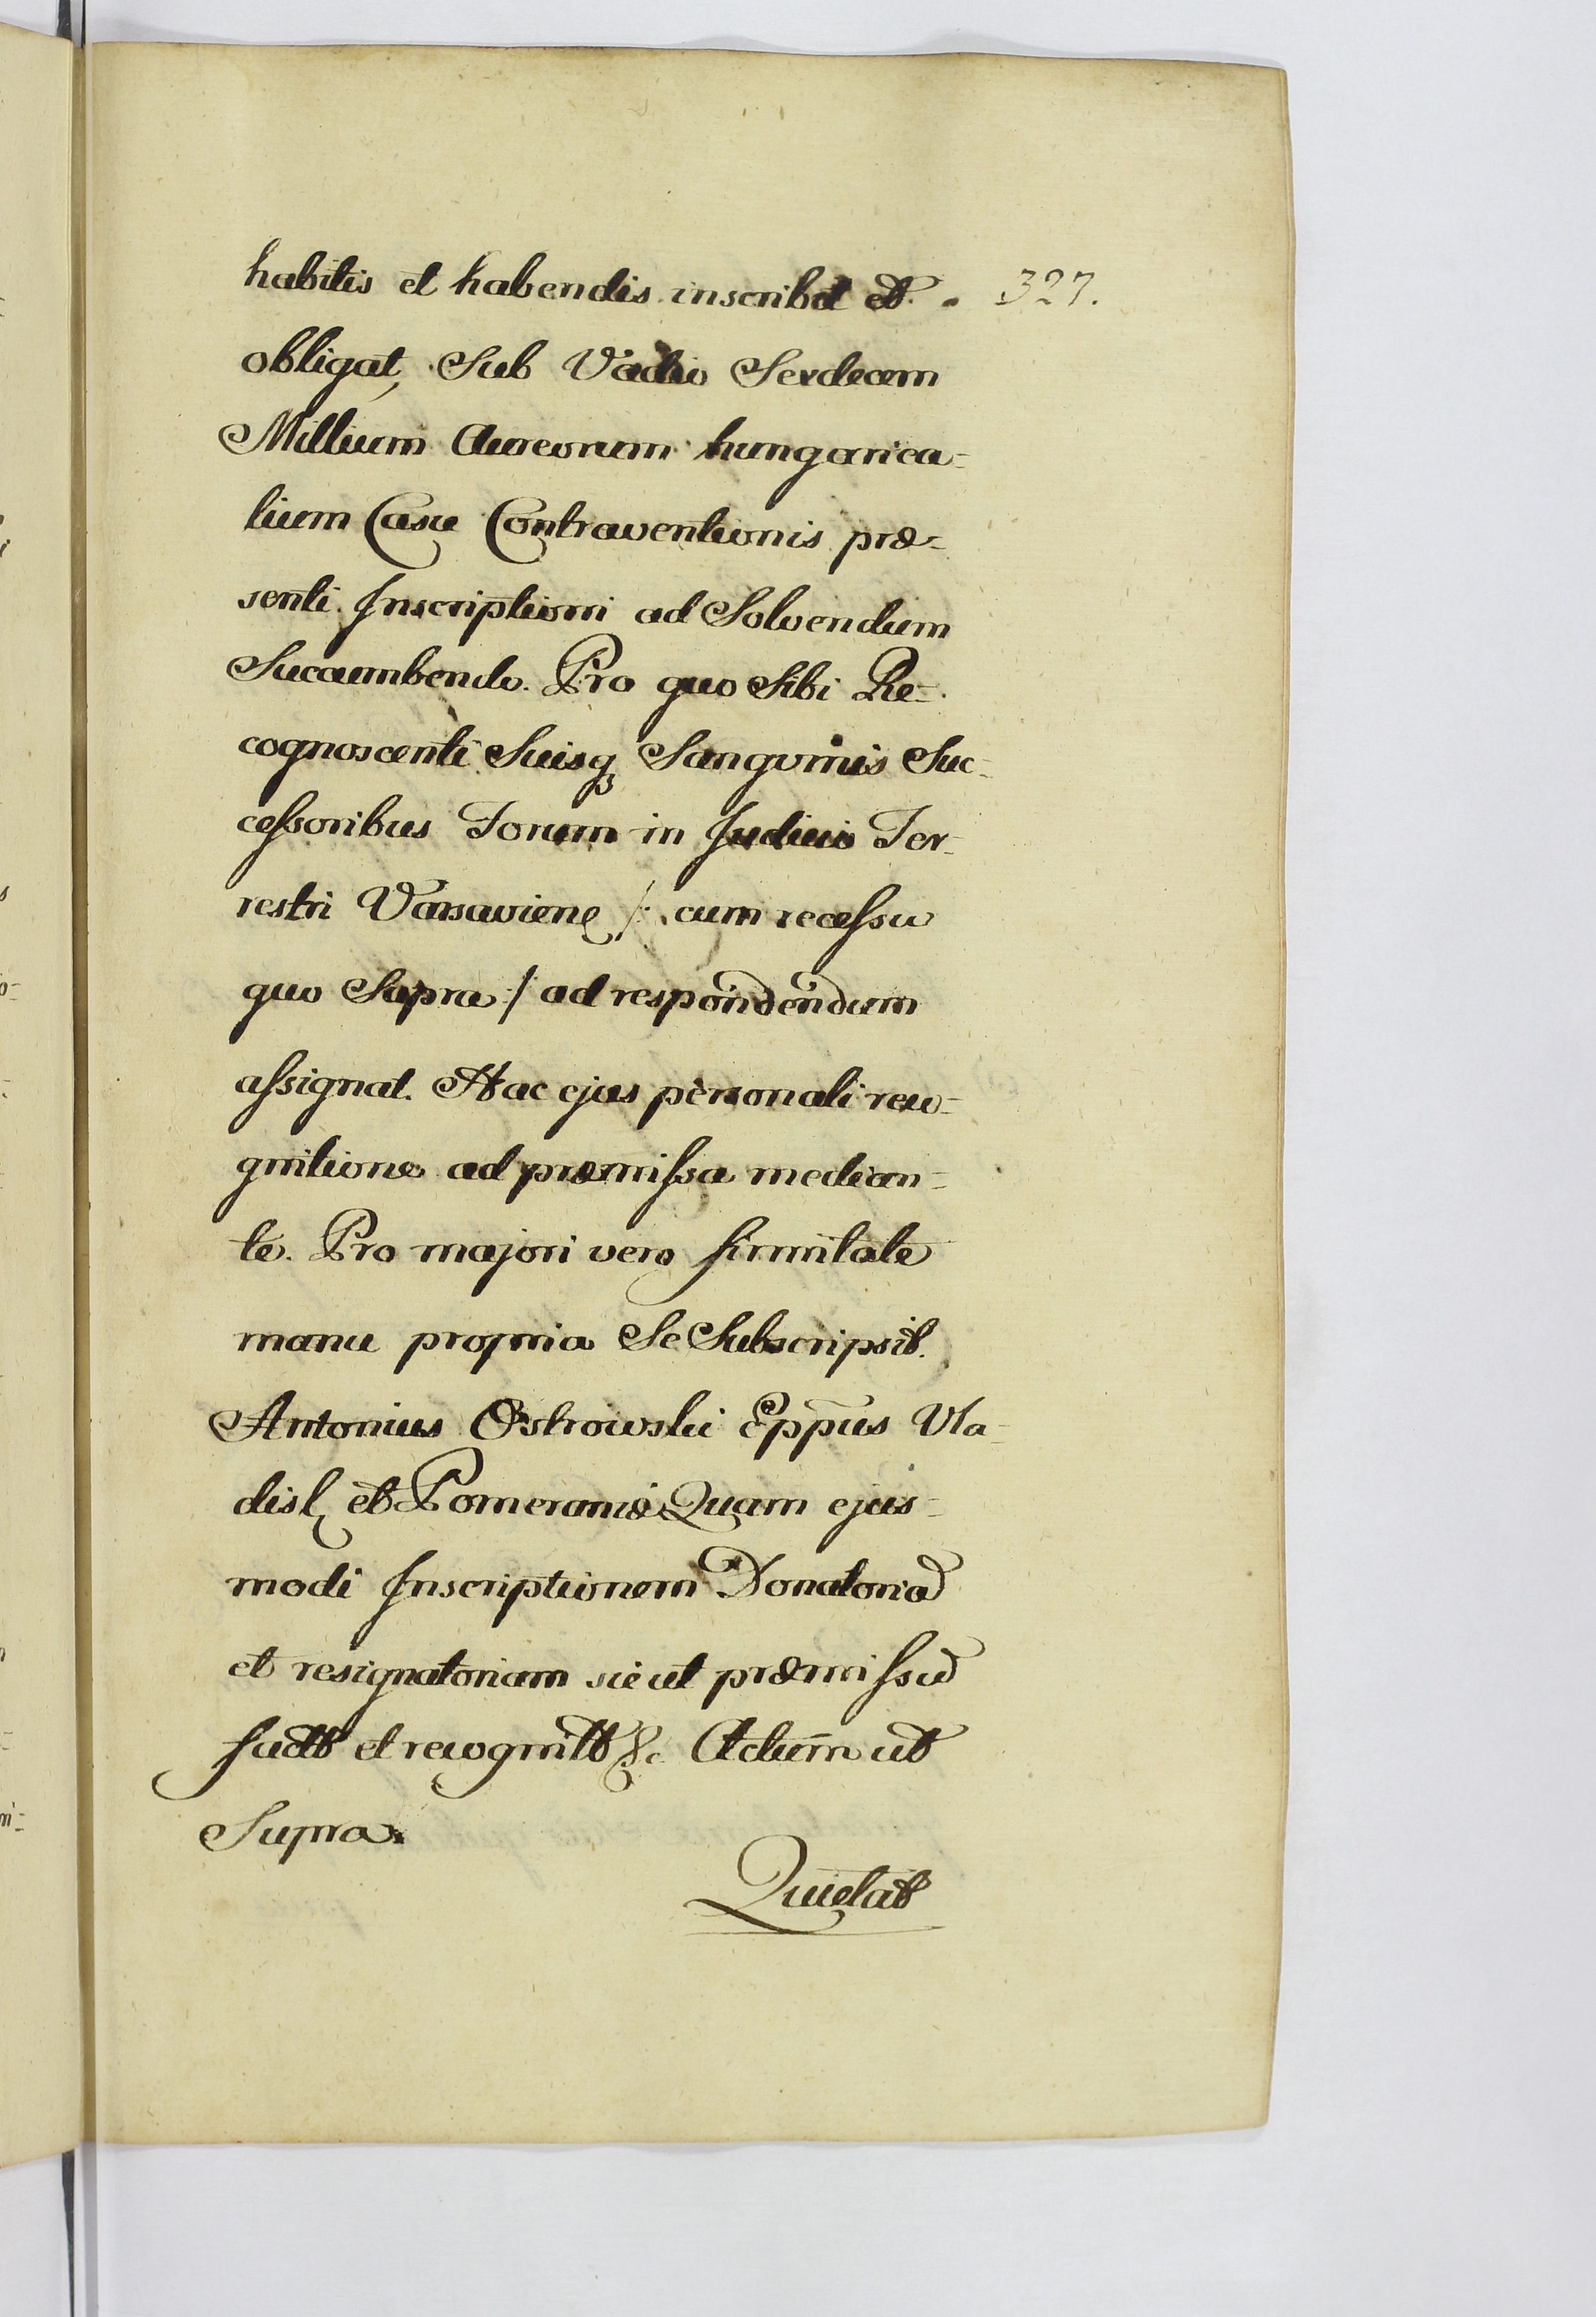 habitis et habendis inscribit et 327.
obligat, Sub Vadio Sexdecem
Millium Aureorum hungarica=
lium Casu Contraventionis præ=
senti Inscriptioni ad Solvendum
Succumbendo. Pro quo Sibi Re=
cognoscenti Suisq Sangvinis Suc=
cessoribus Forum in Judicio Ter=
restri Varsavienę /: cum recessu
quo Supra :/ ad respondendum
assignat. Hac ejus personali reco=
gnitione ad præmissa median=
te. Pro majori vero firmitate
manu propria Se Subscripsit.
Antonius Ostrowski Eppus Vla=
disl et Pomeraniæ Quam ejus=
modi Inscriptionem Donatoria
et resignatoriam sicut præmissu
facit et recognit &c Actum ut
Supra.
Quietat